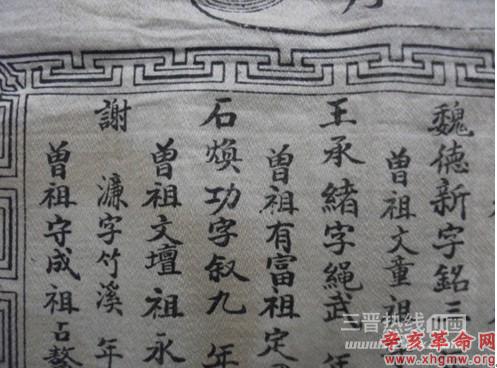 魏德新字銘三
曾祖文童祖
王承緒字繩武 年
曾祖有富祖定
石煥功字叙九 年
曾祖文壇祖永
謝 濂字竹溪 年
曾祖守成祖占鰲
三晋热线
辛亥革命网
www.xhgmw.org